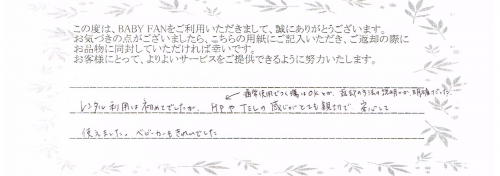 この度は、BABY FANをご利用いただきまして、誠にありがとうございます。
お気づきの点がございましたら、こちらの用紙にご記入いただき、ご返却の際に
お品物に同封していただければ幸いです。
お客様にとって、よりよいサービスをご提供できるように努力いたします。
通常使用でつく傷はOKとか、返却の方法の説明が明確だった
レンタル利用は初めてでしたが、HPやTELの感じがとても親切で安心して
使えました。ベビーカーもきれいでした